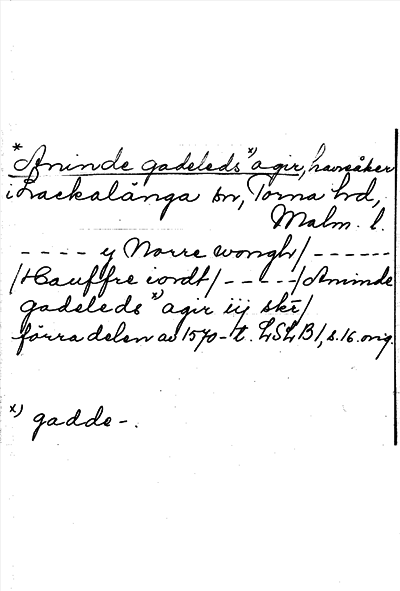 *Aninde gadeleds x) agir, havreåker
i Lackalänga sn, Torna hd,
Malm. l.
- - - - y Norre wongh/ - - - - - -
/Hauffre iordt/ - - - - -/Aninde
gadeleds x) agir iij skr/
förra delen av 1570-t. LSLB1, s.16. orig.
x) gadde-.